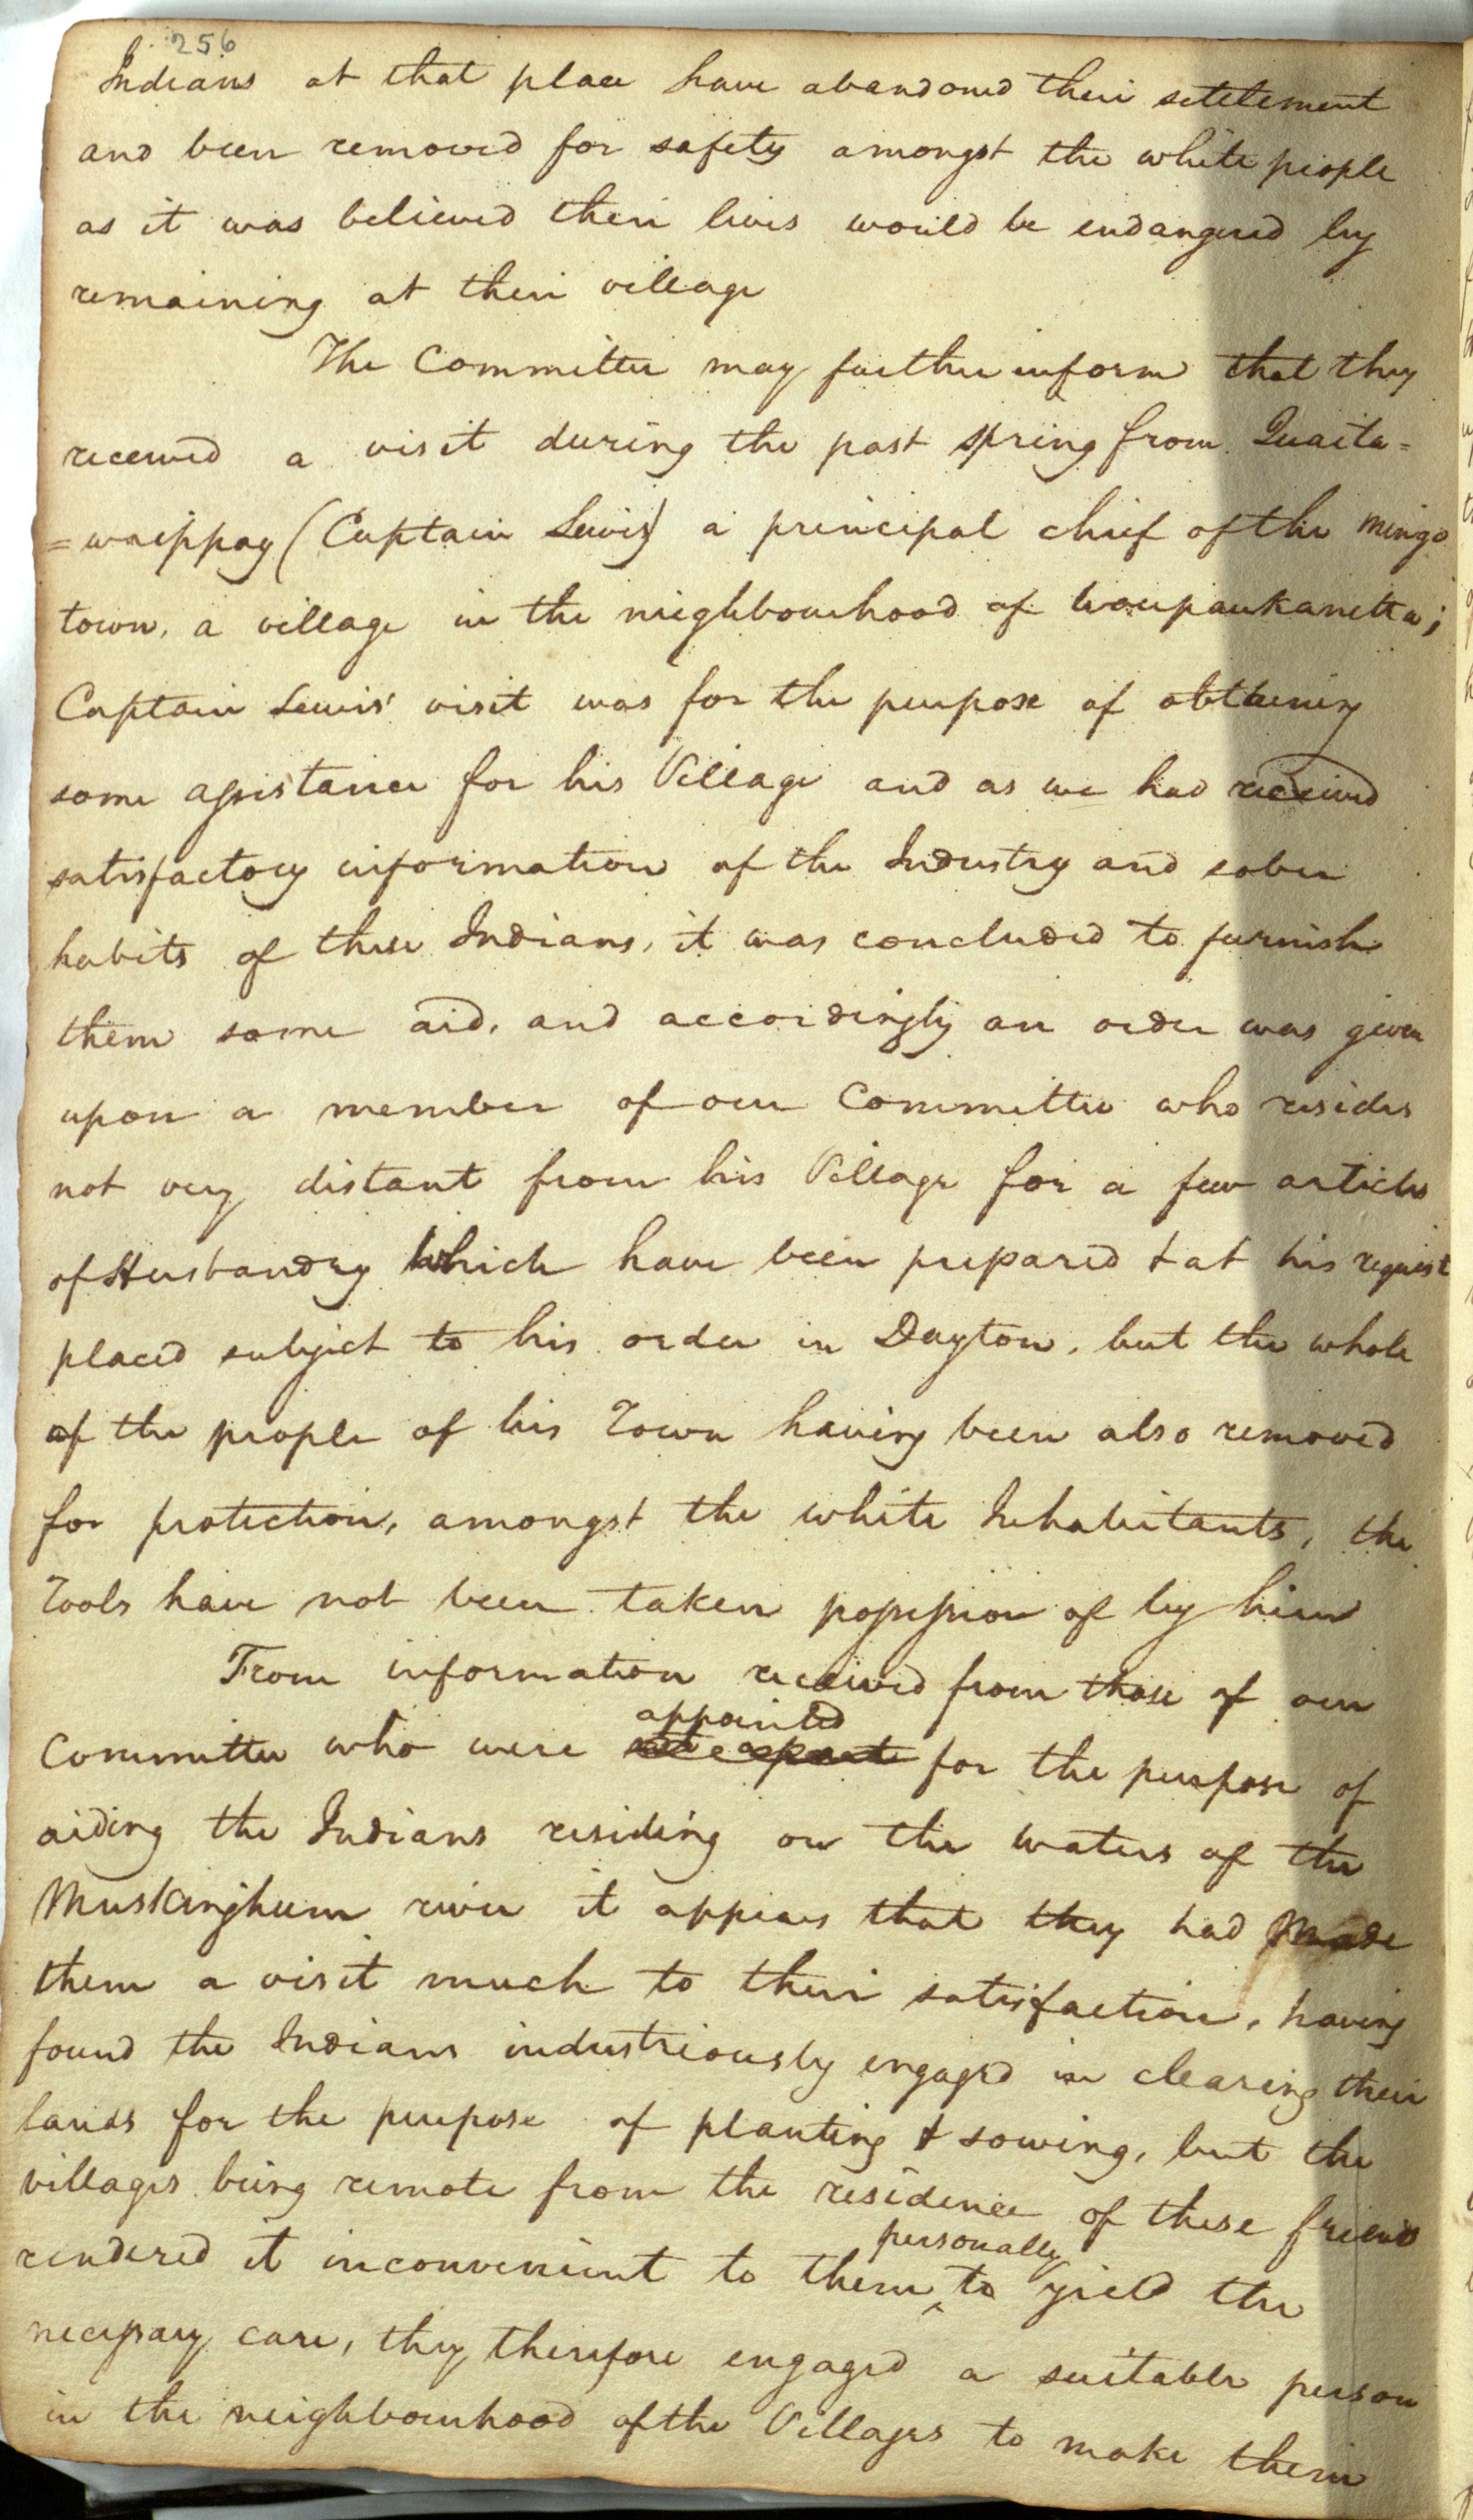 256
Indians at that place have abandoned their settlement
and been removed for safety amongst the white people
as it was believed their lives would be endangered by
remaining at their village
The Committee may further inform that they
received a visit during the past spring from Quaita=
=waippay (Captain Lewis) a principal chief of the mingo
town, a village in the neighbourhood of Waupaukanetta;
Captain Lewis' visit was for the purpose of obtaining
some assistance for his Village and as we had received
satisfactory information of the Industry and sober
habits of these Indians, it was concluded to furnish
them some aid, and accordingly an order was given
upon a member of our Committee who resides
not very distant from his Village for a few articles
of Husbandry which have been prepared & at his request
placed subject to his order in Dayton, but the whole
of the people of his Town having been also removed
for protection, amongst the white Inhabitants, the
Tools have not been taken possession of by him
From information received from those of our
appointed
Committee who were for the purpose of
aiding the Indians residing on the waters of the
Muskinghum river it appears that they had made
them a visit much to their satisfaction, having
found the Indians industriously engaged in clearing their
lands for the purpose of planting & sowing, but the
villages being remote from the residence of these friends
personally
rendered it inconvenient to them ^ to yield the
necessary care, they therefore engaged a suitable person
in the neighbourhood of the Villages to make them